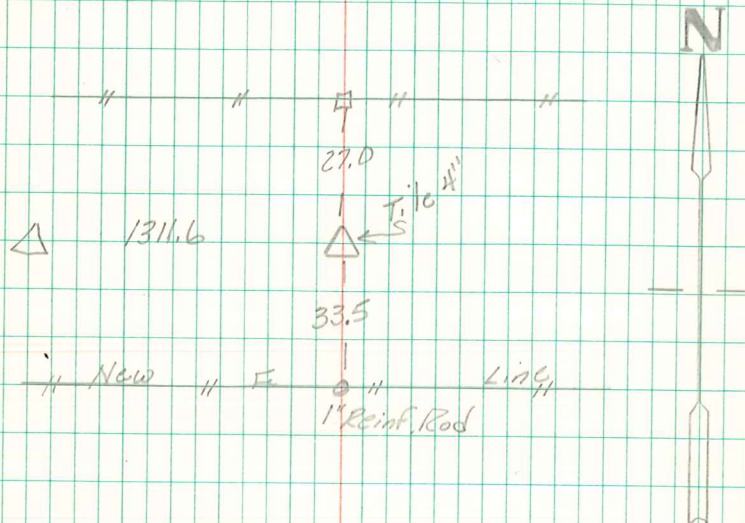 N
27.0
Tile 4"
S
1311.6
33.5
New F. Line
1" Reinf. Rod